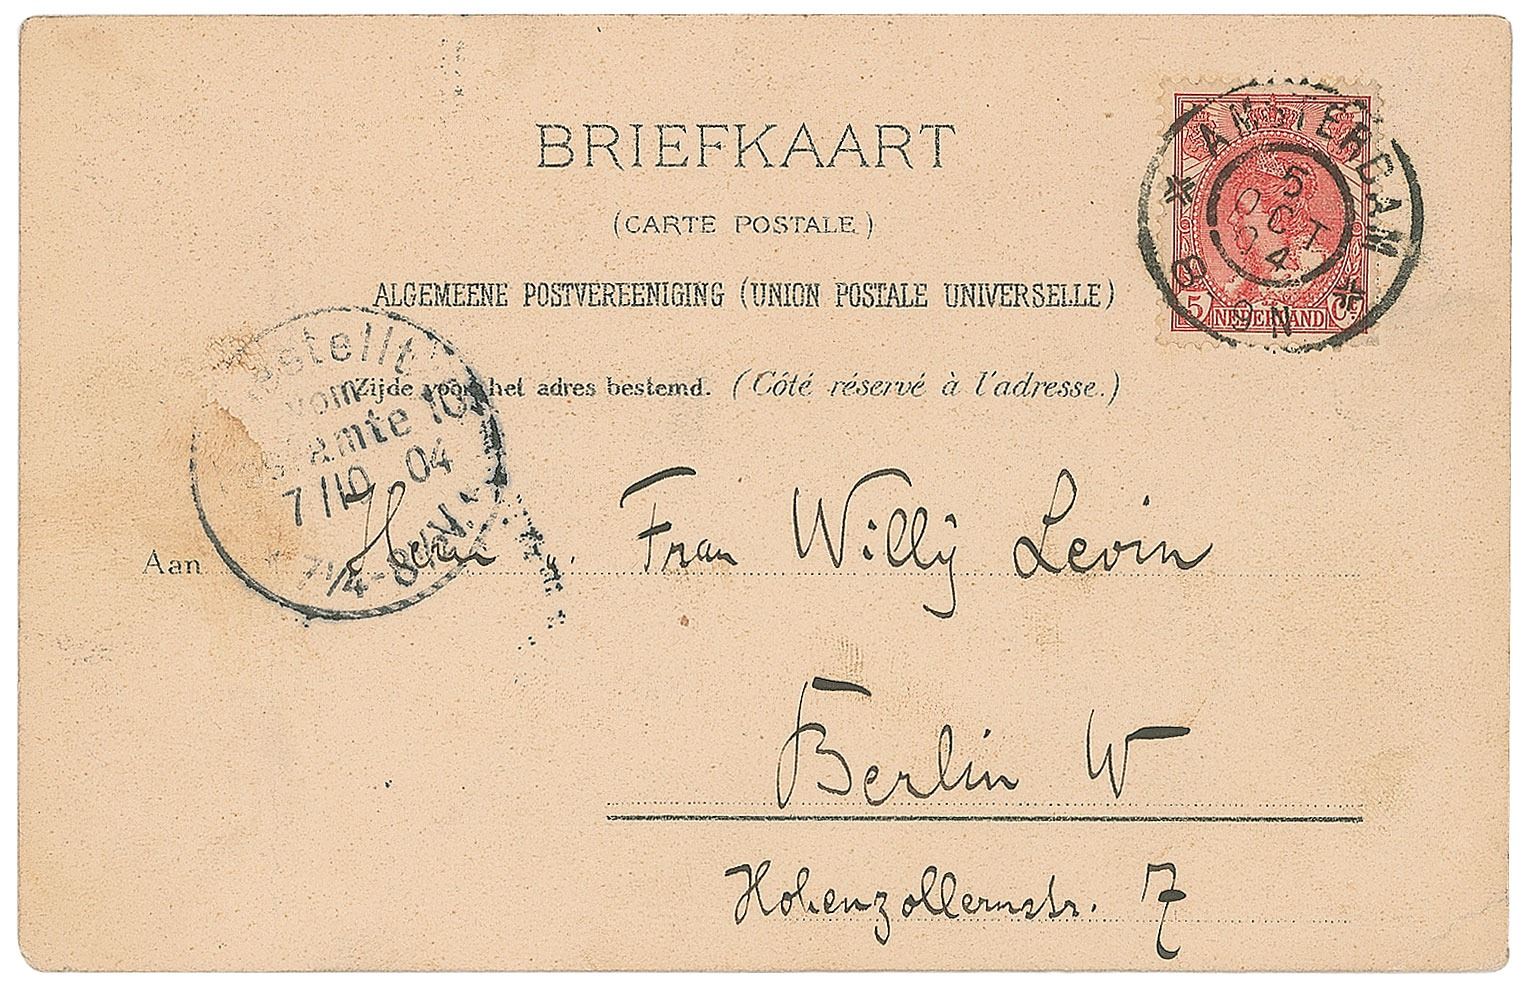 BRIEFKAART
(CARTE POSTALE)
ALGEMEENE POSTVEREENIGING (UNION POSTALE UNIVERSELLE)
Zijde voor het adres bestemd. (Côté réservé à l'adresse.)
AMSTERDAM
5
OCT
04
8-9N
5 NEDERLAND Ct
Bestellt
vom
Postamte 10
7/10 04
7¼-8½N.
Aan Herrn . Frau Willÿ Levin
Berlin W
Hohenzollernstr. 7